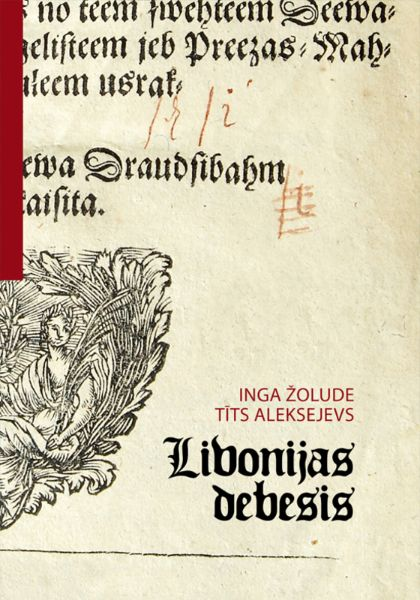 no teem swehteem Deewa⸗
gelisteem jeb Preezas⸗Mah⸗
uleem usrak⸗
ewa Draudsibahm
kaisita.
INGA ŽOLUDE
TĪTS ALEKSEJEVS
Livonijas
debesis